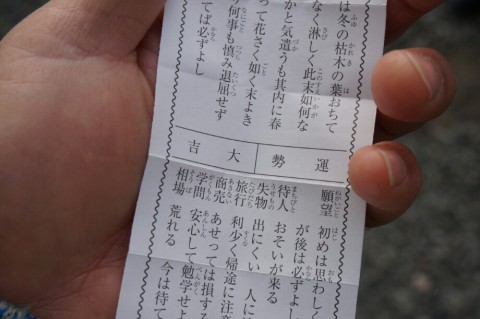 は冬の枯木の葉おちて
なく淋しく此末如何な
かと気遣うも其内に春
って花さく如く末よき
何事も慎み退屈せず
てば必ずよし
運勢
大吉
願望 初めは思わしく
が後は必ずよし
待人 おそいが来る
失物 出にくい 人に
旅行 利少く帰途に注
商売 あせっては損する
学問 安心して勉学せよ
相場 荒れる 今は待て